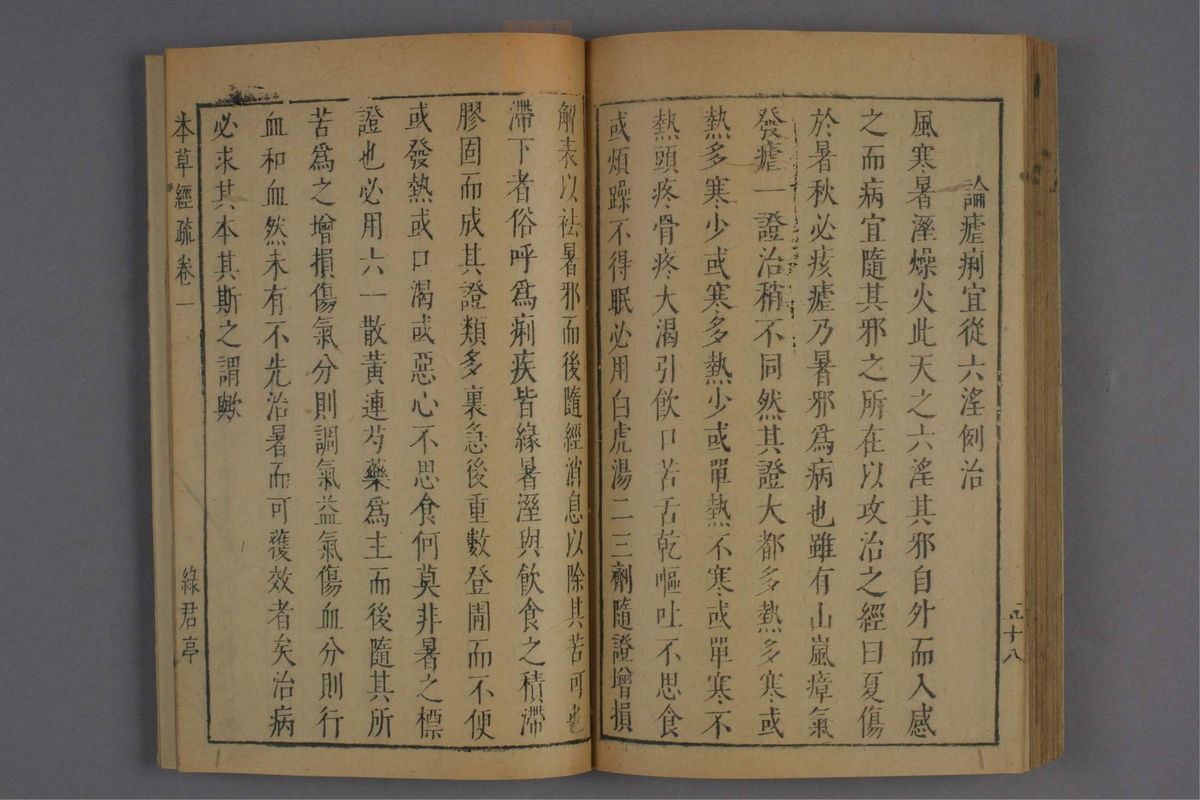 論瘧痢宜從六淫例治
風寒暑溼燥火此天之六淫其邪自外而入感
之而病宜隨其邪之所在以攻治之經曰夏傷
於暑秋必痎瘧乃暑邪為病也雖有山嵐瘴氣
發瘧一證治稍不同然其證大都多熱多寒或
熱多寒少或寒多熱少或單熱不寒或單寒不
熱頭疼骨疼大渴引飲口苦舌乾嘔吐不思食
或煩躁不得眠必用白虎湯二三劑隨證增損
解表以祛暑邪而後隨經消息以除其苦可也
滯下者俗呼為痢疾皆緣暑溼與飲食之積滯
膠固而成其證類多裏急後重數登圊而不便
或發熱或口渴或惡心不思食何莫非暑之標
證也必用六一散黃連芍藥為主而後隨其所
苦為之增損傷氣分則調氣益氣傷血分則行
血和血然未有不先治暑而可獲效者矣治病
必求其本其斯之謂歟
本草經疏卷一
綠君亭
十八